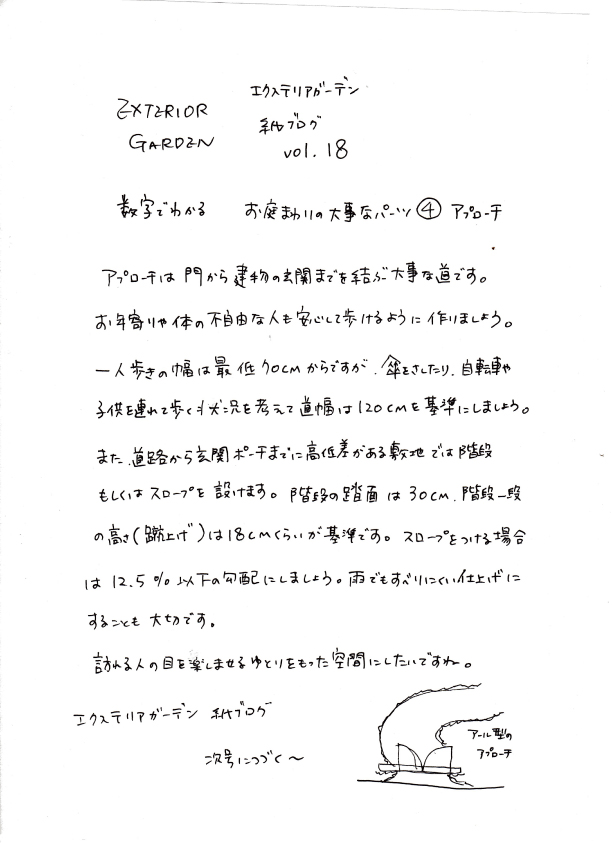 EXTERIOR
GARDEN
エクステリアガーデン
紙ブログ
vol.18
数字でわかる お庭まわりの大事なパーツ④ アプローチ
アプローチは門から建物の玄関までを結ぶ大事な道です。
お年寄りや体の不自由な人も安心して歩けるように作りましょう。
一人歩きの幅は最低70cmからですが、傘をさしたり、自転車や
子供を連れて歩く状況を考えて道幅は120cmを基準にしましょう。
また、道路から玄関ポーチまでに高低差がある敷地では階段
もしくはスロープを設けます。階段の踏面は30cm、階段一段
の高さ(蹴上げ)は18cmくらいが基準です。スロープをつける場合
は12.5%以下の勾配にしましょう。雨でもすべりにくい仕上げに
することも大切です。
訪れる人の目を楽しませるゆとりをもった空間にしたいですね。
エクステリアガーデン 紙ブログ
次号につづく〜
アール型の
アプローチ